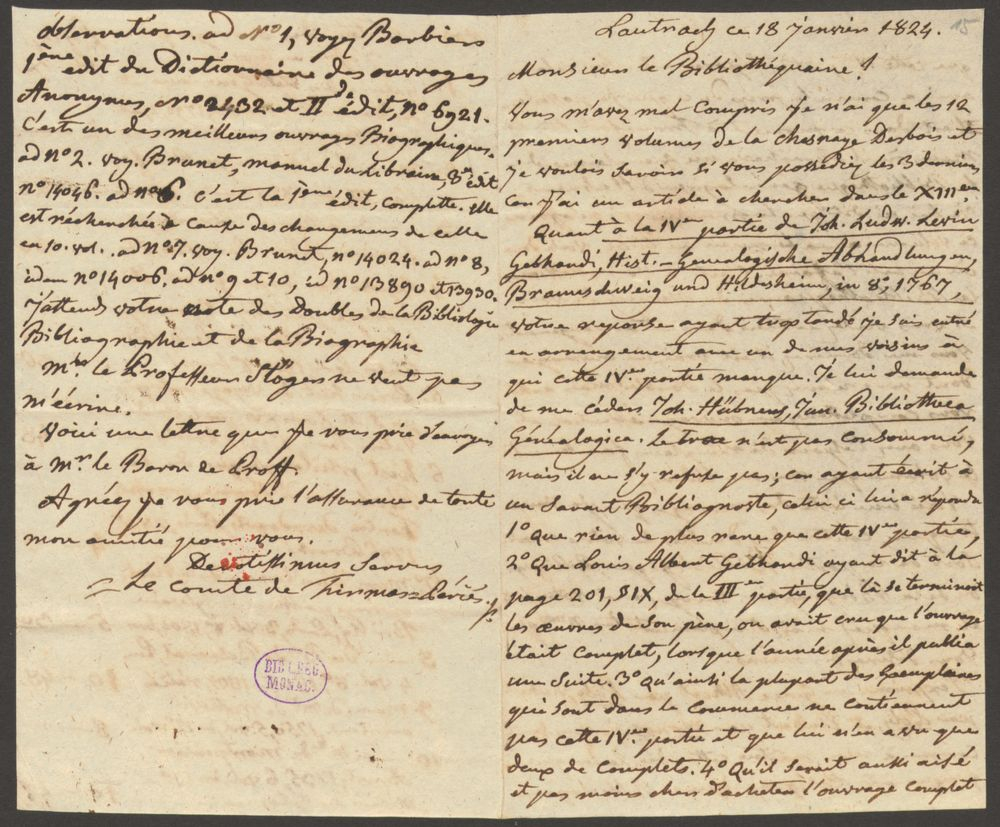 Lautrach ce 18 Janvier 1824. 15
Monsieur le Bibliothéquaire!
Vous m'avez mal compris Je n'ai que les 12
premiers volumes de la chesnaye Desbois et
Je voulois savoir si vous possediez les 3 derniers
car J'ai un article à chercher dans le XIII em
Quant à la IVme partie de Joh. Ludw. Levin
Gebhardi, Hist. - Genealogische Abhandlungen,
Braunschweig und Hildesheim, in 8º, 1767,
votre reponse ayant trop tardé Je suis entré
en arrengement avec un de mes voisins à
qui cette IVme partie manque. Je lui demande
de me céder Joh. Hübners, Jun. Bibliotheca
Généalogica. le troc n'est pas consommé,
mais il ne s'y refuse pas; car ayant écrit à
un savant Bibliagnoste, celui ci lui a répondu
1º Que rien de plus rare que cette IVme partie,
2º Que Louis Albert Gebhardi ayant dit à la
page 201, § IX, de la IIIme partie, que là se terminoit
les œuvres de son père, on avait cru que l'ouvrage
était complet, lorsque l'année après il publia
une suite. 3º qu'ainsi la plupart des Exemplaires
qui sont dans le commerce ne contiennent
pas cette IVme partie et que lui n'en a vu que
deux de complets. 4º Qu'il serait aussi aisé
et pas moins cher d'acheter l'ouvrage complet
observations. ad Nº 1, voyez Barbiers
1ème edit du Dictionnaire des ouvrages
Anonymes, Nº 2432 et IIde édit, nº 6921.
C'est un des meilleurs ouvrages Biographiques.
ad nº 2. voy. Brunet, manuel du libraire, 3me edit
nº 14046. ad nº 6. C'est la 1ème édit, complette. elle
est réchérchée à cause des changemens de celle
en 10. vol. ad nº 7. voy. Brunet, nº 14024. ad nº 8,
idem nº 14006. ad nº 9 et 10, id nº 13890 et 13930.
J'attends votre note des Doubles de la Bibliologie
Bibliographie et de la Biographie
le Professeur Stöger ne veut pas
m'écrire.
Voici une lettre que Je vous prie d'envoyer
à Mr. le Baron de Proff.
Agréez Je vous prie l'assurance de toute
mon amitié pour vous.
Devotissimus Servus
Le comte de
BIBL. REG.
MONAC.